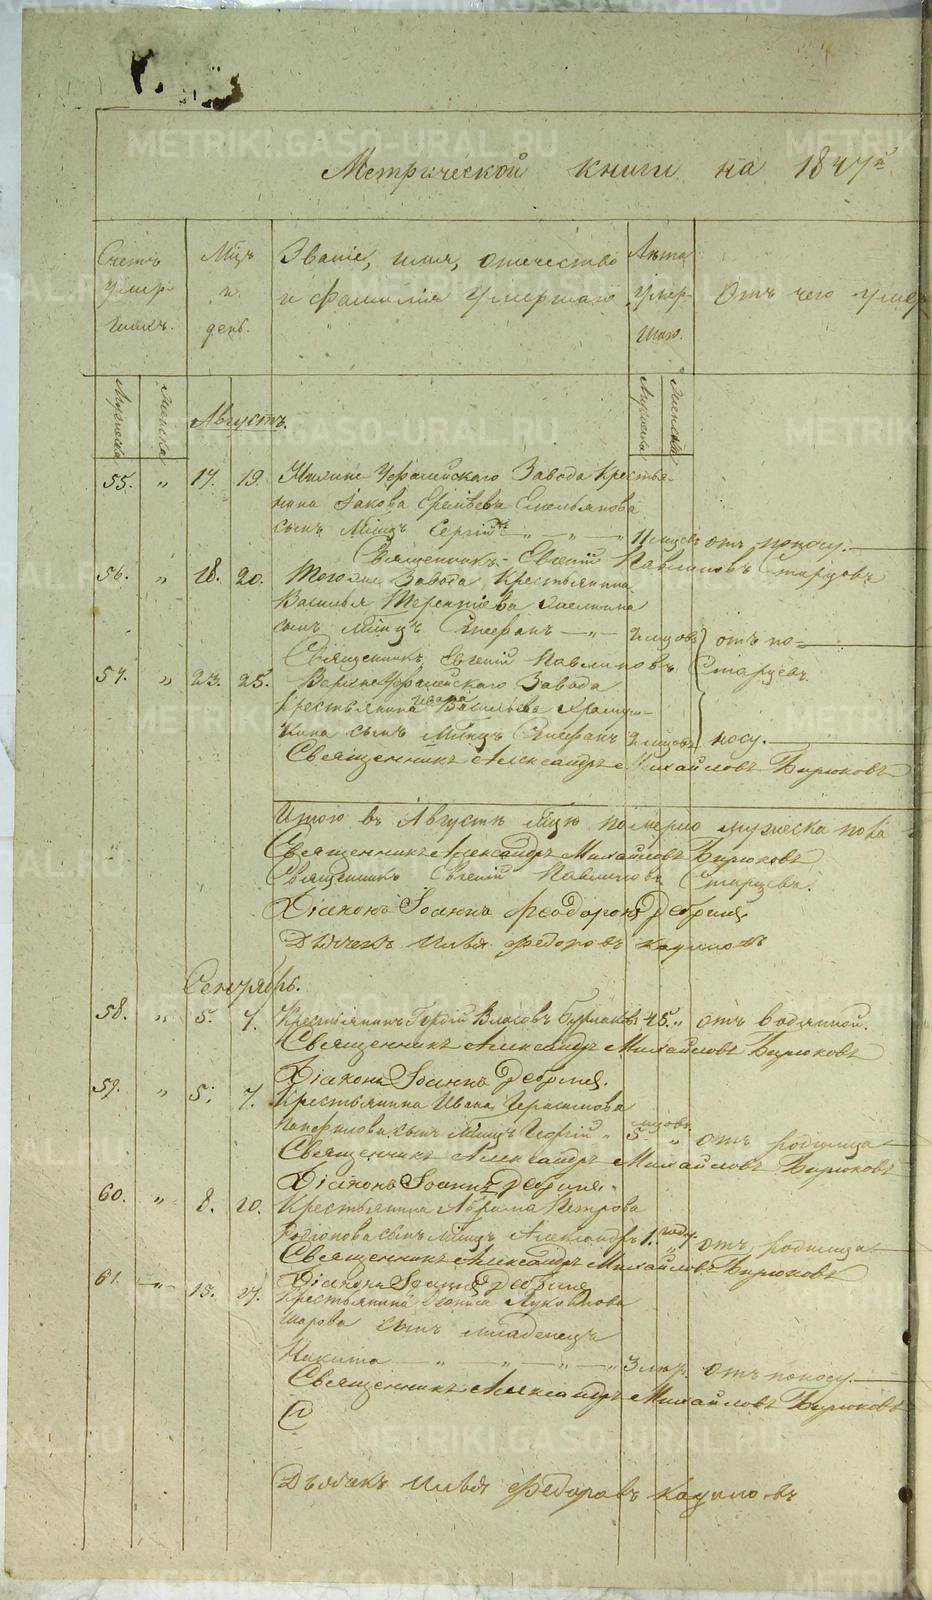 Метрической книги на 1847й
Счетъ умер- шихъ.
Мцъ и день.
Званіе, имя, отечество
и фамилія умершаго
Лѣта умер- шаго.
Отъ чего умер
Мужеска Женска
Мужеска Женска
Августъ.
55. „ 17. 19. Нижне Уфалейскаго Завода Крестья-
нина Іакова
сынъ Млнцъ Сергій „ „ мцев отъ поносу.
Священникъ Евгеній Павлиновъ Старцовъ
56. „ 18. 20. Тогоже Завода Крестьянина
Василья Терентіева
сынъ млнцъ Стефанъ „ 2 мцовъ отъ по=
Священникъ Евгеній Павлиновъ Старцевъ.
57. „ 23. 25. Верхне Уфалейскаго Завода
Крестьянина Ивана Васильева
кина сынъ Млнцъ Стефанъ 2 мцовъ носу.
Священникъ Александръ Михайловъ Бирюковъ
Итого въ Августѣ мцѣ померло мужеска пола
Священникъ Александръ Михайловъ Бирюковъ
Священникъ Евгеній Павлиновъ Старцевъ.
Діаконъ Іоаннъ Феодоровъ
Дьячекъ Илья Федоровъ
Сентябрь.
58. „ 5. 7. Крестьянинъ Гордій Власовъ 45. „ отъ водянной.
Священникъ Александръ Михайловъ Бирюковъ
Діаконъ Іоаннъ
59. „ 5. 7. Крестьянина Ивана Герасимова
Панфилова сынъ Млнцъ Георгій „ 5. мцовъ „ отъ родимца
Священникъ Александръ Михайловъ Бирюковъ
Діаконъ Іоаннъ
60. „ 8. 10. Крестьянина Абрама Петрова
Родіонова сынъ млнцъ Александръ 1. году „ отъ родимца
Священникъ Александръ Михайловъ Бирюковъ
Діаконъ Іоаннъ
61. „ 15. 17. Крестьянина
Шарова сынъ младенецъ
Никита „ „ „ 3 отъ поносу.
Священникъ Александръ Михайловъ Бирюковъ
Дьячекъ Илья Федоровъ
METRIKI.GASO-URAL.RU